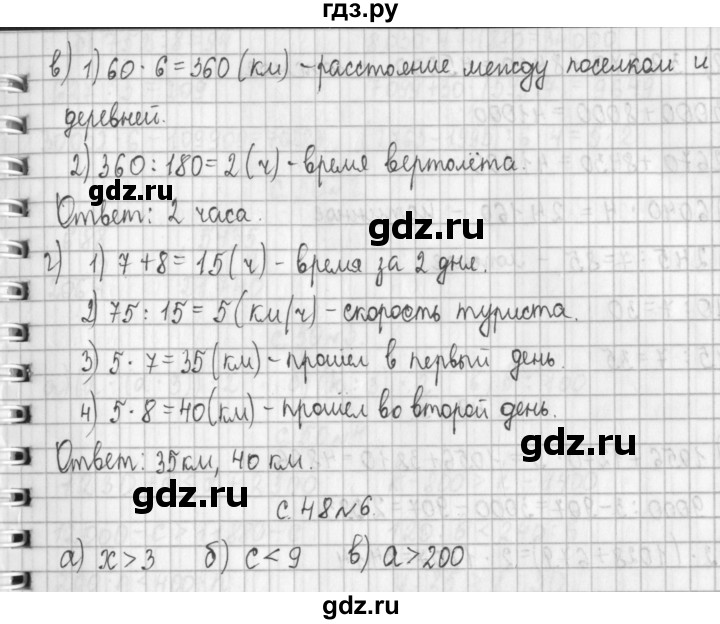 гдз.ру
в) 1) 60 · 6 = 360 (км) - расстояние между поселком и
деревней.
2) 360 : 180 = 2 (ч) - время вертолёта.
gdz.ru
Ответ: 2 часа.
gdz.ru
г) 1) 7 + 8 = 15 (ч) - время за 2 дня.
2) 75 : 15 = 5 (км/ч) - скорость туриста.
3) 5 · 7 = 35 (км) - прошёл в первый день.
4) 5 · 8 = 40 (км) - прошёл во второй день.
gdz.ru
Ответ: 35 км, 40 км.
gdz.ru
с. 48 №6.
а) x > 3 б) c < 9 в) a > 200
gdz.ru